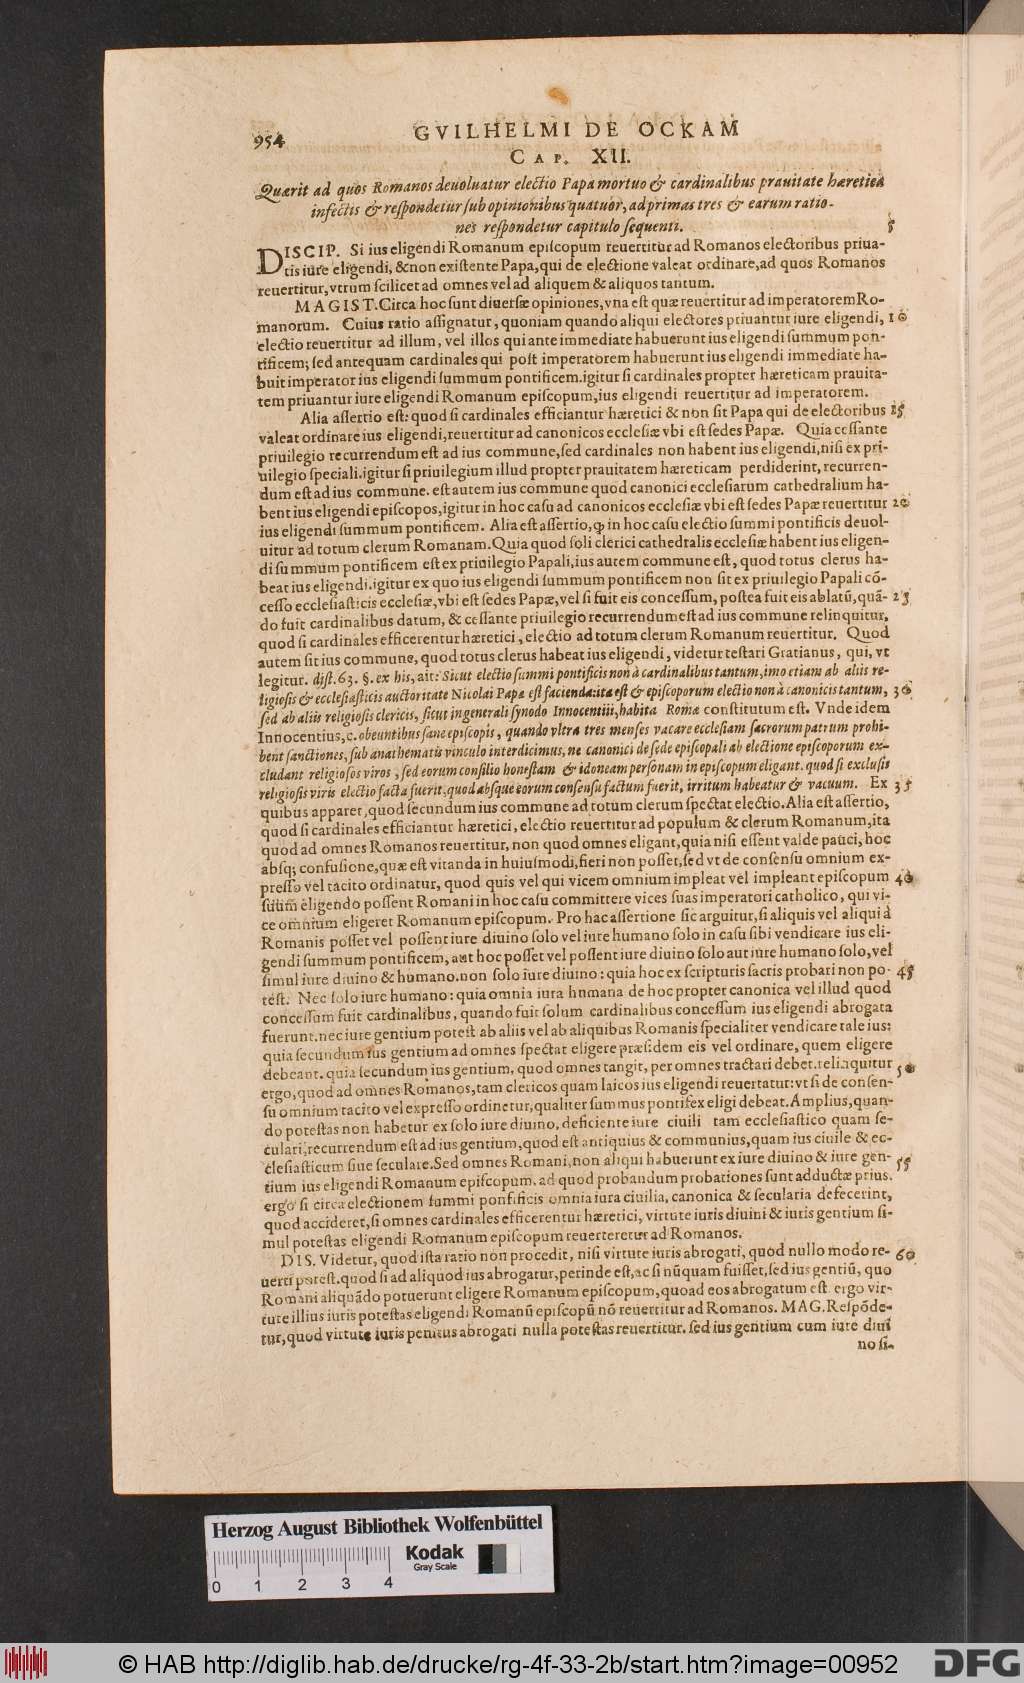 954
GVILHELMI DE OCKAM
CAP. XII.
Quærit ad quos Romanos deuoluatur electio Papa mortuo & cardinalibus prauitate hæretica
infectis & respondetur sub opinionibus quatuor, ad primas tres & earum ratio-
nes respondetur capitulo sequenti. 5
DISCIP. Si ius eligendi Romanum episcopum reuertitur ad Romanos electoribus priua-
tis iure eligendi, & non existente Papa, qui de electione valeat ordinare, ad quos Romanos
reuertitur, vtrum scilicet ad omnes vel ad aliquem & aliquos tantum.
MAGIST. Circa hoc sunt diuersæ opiniones, vna est quæ reuertitur ad imperatorem Ro-
manorum. Cuius ratio assignatur, quoniam quando aliqui electores priuantur iure eligendi, 10
electio reuertitur ad illum, vel illos qui ante immediate habuerunt ius eligendi summum pon-
tificem; sed antequam cardinales qui post imperatorem habuerunt ius eligendi immediate ha-
buit imperator ius eligendi summum pontificem. igitur si cardinales propter hæreticam prauita-
tem priuantur iure eligendi Romanum episcopum, ius eligendi reuertitur ad imperatorem.
Alia assertio est: quod si cardinales efficiantur hæretici & non sit Papa qui de electoribus 15
valeat ordinare ius eligendi, reuertitur ad canonicos ecclesiæ vbi est sedes Papæ. Quia cessante
priuilegio recurrendum est ad ius commune, sed cardinales non habent ius eligendi, nisi ex pri-
uilegio speciali. igitur si priuilegium illud propter prauitatem hæreticam perdiderint, recurren-
dum est ad ius commune. est autem ius commune quod canonici ecclesiarum cathedralium ha-
bent ius eligendi episcopos, igitur in hoc casu ad canonicos ecclesiæ vbi est sedes Papæ reuertitur 20
ius eligendi summum pontificem. Alia est assertio, ꝙ in hoc casu electio summi pontificis deuol-
uitur ad totum clerum Romanam. Quia quod soli clerici cathedralis ecclesiæ habent ius eligen-
di summum pontificem est ex priuilegio Papali, ius autem commune est, quod totus clerus ha-
beat ius eligendi. igitur ex quo ius eligendi summum pontificem non sit ex priuilegio Papali cō-
cesso ecclesiasticis ecclesiæ, vbi est sedes Papæ, vel si fuit eis concessum, postea fuit eis ablatū, quā- 25
do fuit cardinalibus datum, & cessante priuilegio recurrendum est ad ius commune relinquitur,
quod si cardinales efficerentur hæretici, electio ad totum clerum Romanum reuertitur. Quod
autem sit ius commune, quod totus clerus habeat ius eligendi, videtur testari Gratianus, qui, vt
legitur. dist. 63. §. ex his, ait: Sicut electio summi pontificis non à cardinalibus tantum, imo etiam ab aliis re-
ligiosis & ecclesiasticis auctoritate Nicolai Papæ est facienda: ita est & episcoporum electio non à canonicis tantum, 30
sed ab aliis religiosis clericis, sicut in generali synodo Innocentiii, habita Romæ constitutum est. Vnde idem
Innocentius, c. obeuntibus sane episcopis, quando vltra tres menses vacare ecclesiam sacrorum patrum prohi-
bent sanctiones, sub anathematis vinculo interdicimus, ne canonici de sede episcopali ab electione episcoporum ex-
cludant religiosos viros, sed eorum consilio honestam & idoneam personam in episcopum eligant. quod si exclusis
religiosis viris electio facta fuerit, quod absque eorum consensu factum fuerit, irritum habeatur & vacuum. Ex 35
quibus apparet, quod secundum ius commune ad totum clerum spectat electio. Alia est assertio,
quod si cardinales efficiantur hæretici, electio reuertitur ad populum & clerum Romanum, ita
quod ad omnes Romanos reuertitur, non quod omnes eligant, quia nisi essent valde pauci, hoc
absq; confusione, quæ est vitanda in huiusmodi, fieri non posset, sed vt de consensu omnium ex-
presso vel tacito ordinatur, quod quis vel qui vicem omnium impleat vel impleant episcopum 40
suum eligendo possent Romani in hoc casu committere vices suas imperatori catholico, qui vi-
ce omnium eligeret Romanum episcopum. Pro hac assertione sic arguitur, si aliquis vel aliqui à
Romanis posset vel possent iure diuino solo vel iure humano solo in casu sibi vendicare ius eli-
gendi summum pontificem, aut hoc posset vel possent iure diuino solo aut iure humano solo, vel
simul iure diuino & humano. non solo iure diuino: quia hoc ex scripturis sacris probari non po- 45
test. Nec solo iure humano: quia omnia iura humana de hoc propter canonica vel illud quod
concessum fuit cardinalibus, quando fuit solum cardinalibus concessum ius eligendi abrogata
fuerunt. nec iure gentium potest ab aliis vel ab aliquibus Romanis specialiter vendicare tale ius:
quia secundum ius gentium ad omnes spectat eligere præsidem eis vel ordinare, quem eligere
debeant. quia secundum ius gentium, quod omnes tangit, per omnes tractari debet. relinquitur 50
ergo, quod ad omnes Romanos, tam clericos quam laicos ius eligendi reuertatur: vt si de consen-
su omnium tacito vel expresso ordinetur, qualiter summus pontifex eligi debeat. Amplius, quan-
do potestas non habetur ex solo iure diuino, deficiente iure ciuili tam ecclesiastico quam se-
culari, recurrendum est ad ius gentium, quod est antiquius & communius, quam ius ciuile & ec-
clesiasticum siue seculare. Sed omnes Romani, non aliqui habuerunt ex iure diuino & iure gen- 55
tium ius eligendi Romanum episcopum. ad quod probandum probationes sunt adductæ prius.
ergo si circa electionem summi pontificis omnia iura ciuilia, canonica & secularia defecerint,
quod accideret, si omnes cardinales efficerentur hæretici, virtute iuris diuini & iuris gentium si-
mul potestas eligendi Romanum episcopum reuerteretur ad Romanos.
DIS. Videtur, quod ista ratio non procedit, nisi virtute iuris abrogati, quod nullo modo re- 60
uerti potest. quod si ad aliquod ius abrogatur, perinde est, ac si nūquam fuisset, sed ius gentiū, quo
Romani aliquādo potuerunt eligere Romanum episcopum, quoad eos abrogatum est. ergo vir-
tute illius iuris potestas eligendi Romanū episcopū nō reuertitur ad Romanos. MAG. Respōde-
tur, quod virtute iuris penitus abrogati nulla potestas reuertitur. sed ius gentium cum iure diui
no si-
Herzog August Bibliothek Wolfenbüttel
Kodak
Gray Scale
0 1 2 3 4
© HAB http://diglib.hab.de/drucke/rg-4f-33-2b/start.htm?image=00952
DFG